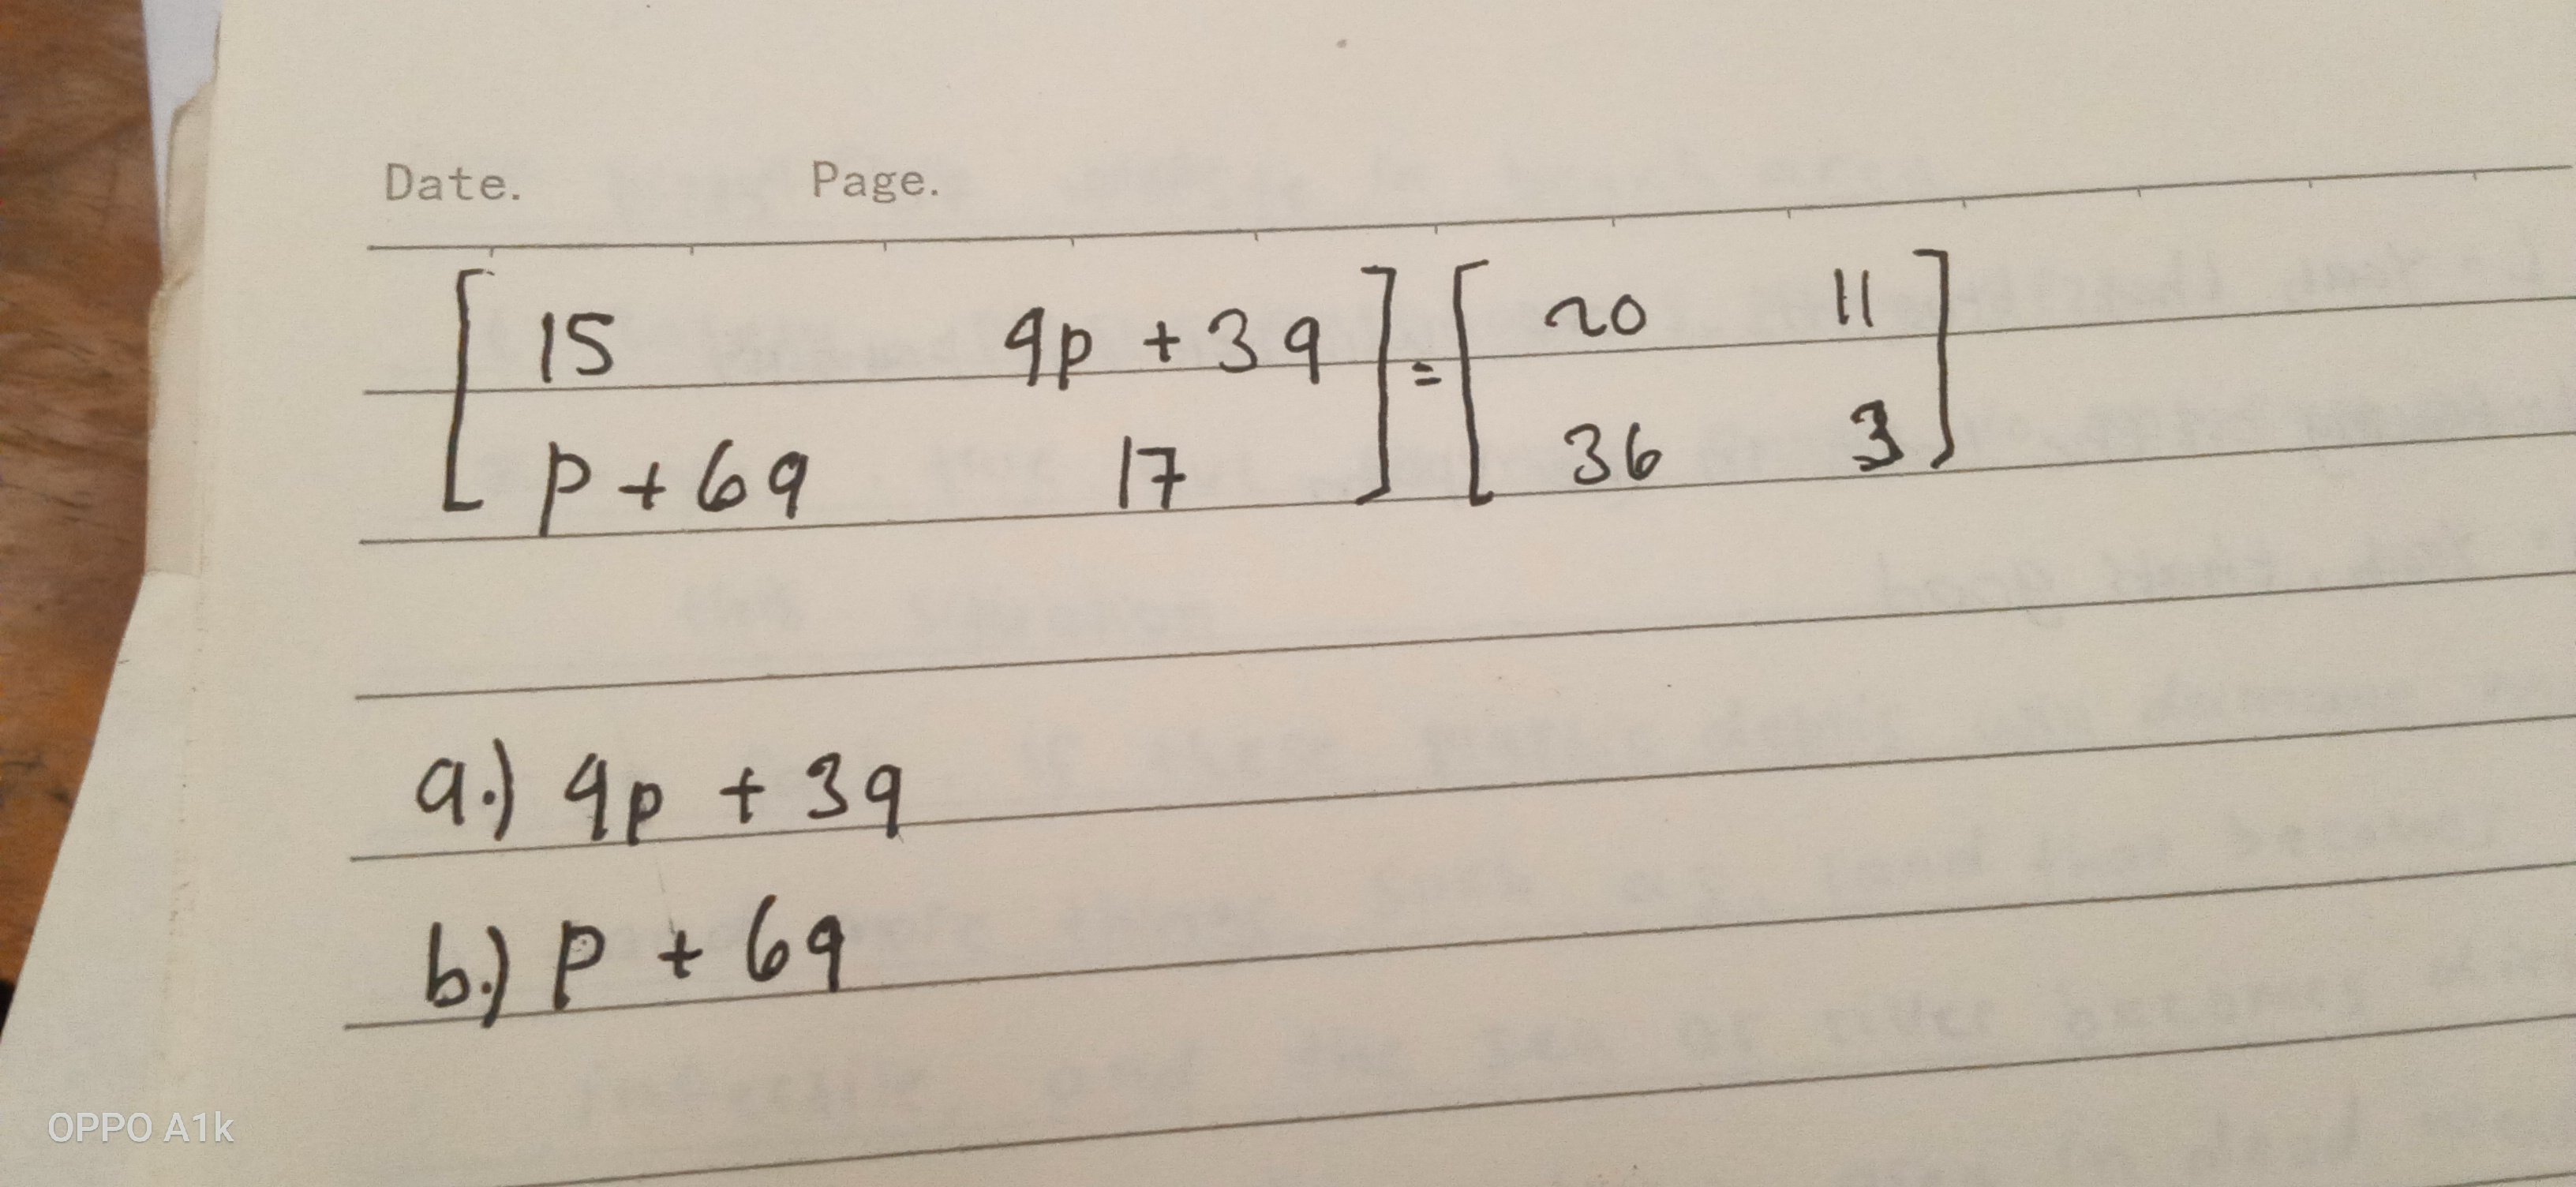 Date. Page.
[ 15 4p + 3q ] = [ 20 11 ]
[ p + 6q 17 ] [ 36 3 ]
a.) 4p + 3q
b.) p + 6q
OPPO A1k